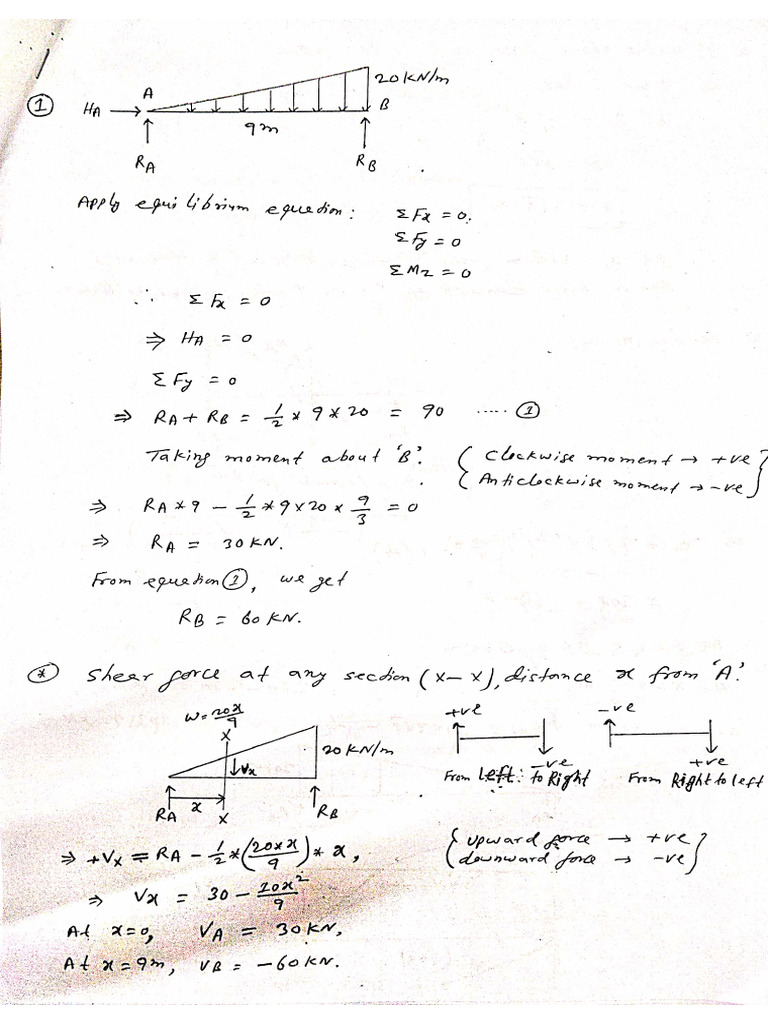 20 kN/m
① HA → A B
9m
RA RB
Apply equilibrium equation: ΣFx = 0.
ΣFy = 0
ΣMz = 0
∴ ΣFx = 0
⇒ HA = 0
ΣFy = 0
⇒ RA + RB = 1/2 * 9 * 20 = 90 ..... ①
Taking moment about 'B'. { Clockwise moment → +ve }
{ Anticlockwise moment → -ve }
⇒ RA * 9 - 1/2 * 9 * 20 * 9/3 = 0
⇒ RA = 30 kN.
From equation ①, we get
RB = 60 kN.
⊛ Shear force at any section (x-x), distance x from 'A'.
w = 20x/9 +ve -ve
X
20 kN/m
↓Vx -ve +ve
From Left: to Right From Right to left
x
RA X RB
⇒ +Vx = RA - 1/2 * (20*x/9) * x, { upward force → +ve }
{ downward force → -ve }
⇒ Vx = 30 - 20x²/9
At x=0, VA = 30 kN,
At x = 9m, VB = -60 kN.